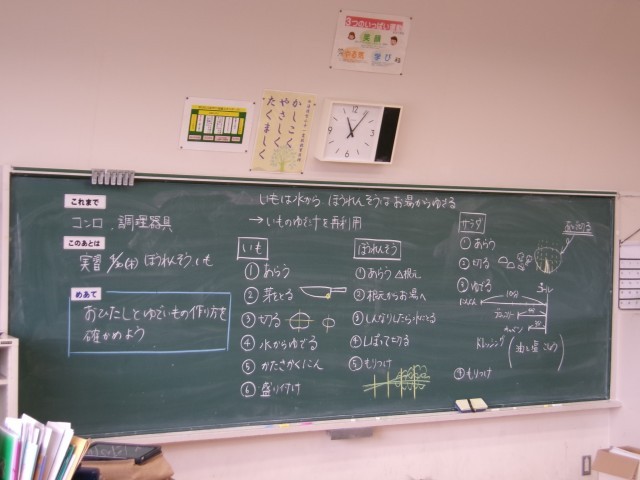 3つのいっぱい
笑顔
学び
かしこく
やさしく
たくましく
12
3
6
9
いもは水から ほうれんそうはお湯からゆでる
→いものゆで汁を再利用
これまで
コンロ、調理器具
このあとは
実習 ほうれんそう、いも
めあて
おひたしとゆでいもの作り方を
確かめよう
いも
① あらう
② 芽をとる
③ 切る
④ 水からゆでる
⑤ かたさかくにん
⑥ 盛り付け
ほうれんそう
① あらう △根元
② 根元からお湯へ
③ しんなりしたら水にとる
④ しぼって切る
⑤ もりつけ
サラダ
① あらう
② 切る
③ ゆでる
にんじん
10分
ブロッコリー
キャベツ
ドレッシング
(油と塩 こしょう)
④ もりつけ